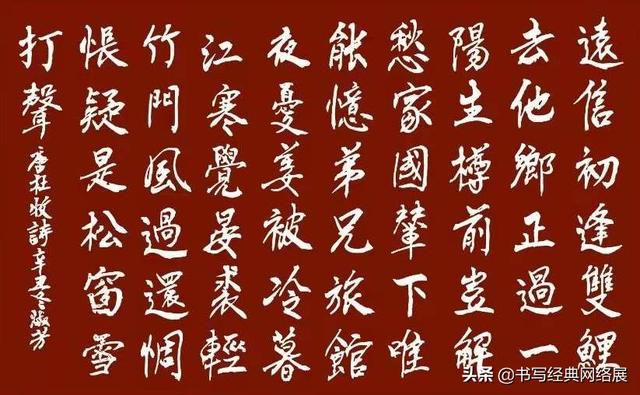 遠信初逢雙鯉
去他鄉正過一
陽生樽前豈解
愁家國輦下唯
能憶弟兄旅館
夜憂姜被冷暮
江寒覺晏裘輕
竹門風過還惆
悵疑是松窗雪
打聲
唐杜牧詩辛丑冬淑芳
头条 @书写经典网络展